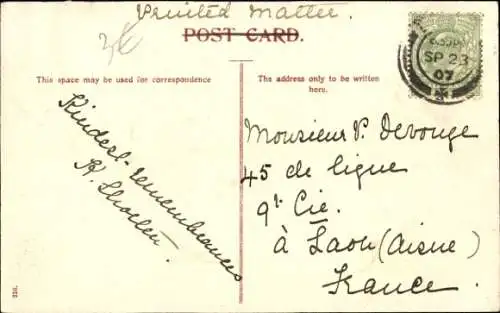 Printed Matter.
3€
POST CARD.
This space may be used for correspondence
The address only to be written
here.
SP 23
07
Kindest remembrances
Monsieur V. Devouge
45 de ligne
9e Cie.
à Laon (Aisne)
France.